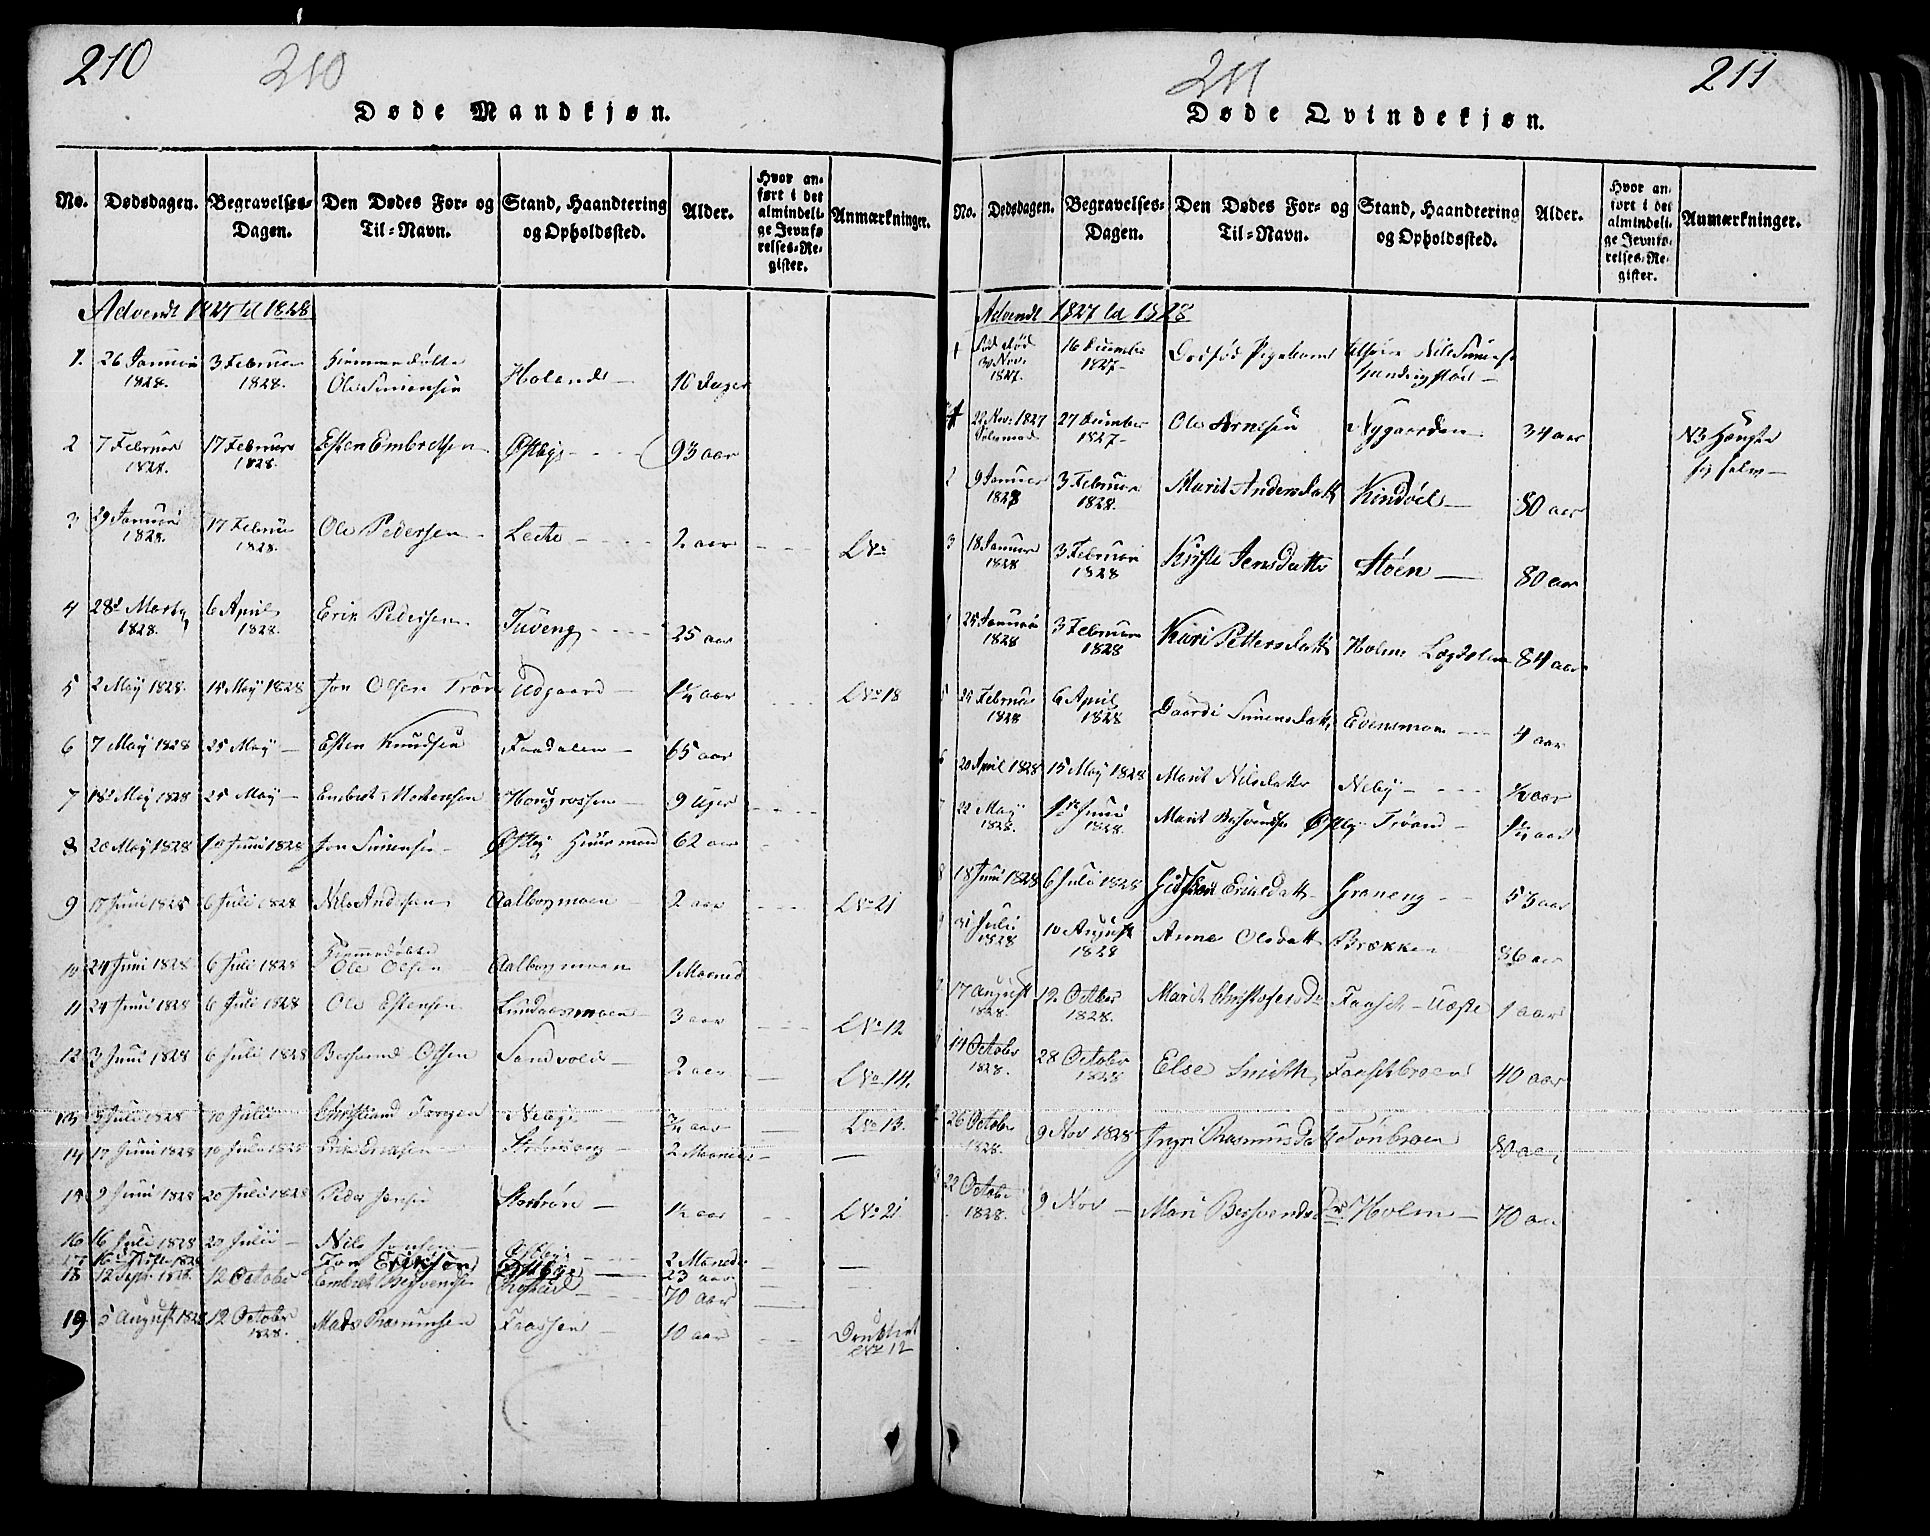 210
210
Døde Mandkjøn.
No. Dødsdagen. Begravelses-Dagen. Den Dødes For- og Til-Navn. Stand, Haandtering og Opholdssted. Alder. Hvor anført i det almindelige Jevnførelses-Register. Anmærkninger.
Advendt 1827 til 1828
1. 26 Januari 1828. 3 Februar 1828. Hiemmedøbte Ole Simensen Holands 10 Dager
2 7 Februar 1828. 17 Februar 1828. Esten Embretsen Østbye 93 aar
3 29 Januari 1828. 17 Februar 1828. Ole Pedersen Leete 2 aar
4 28d Marty 1828. 6 April 1828. Erik Pedersen Tuveng 25 aar
5 2 May 1828. 15 May 1828 Jon Olsen Trøen Udgaard 1½ aar No 18
6 7 May 1828 25 May Esten Knudsen Faadalen 65 aar
7 18d May 1828 25 May Embret Mortensen 9 Uger
8 20 May 1828 1d Juni 1828 Jon Simensen Østby Huusmand 62 aar
9 17 Juni 1828 6 Juli 1828 Nils Andersen Aalbogmoen 2 aar No 21
10 24 Juni 1828 6 Juli 1828 Hiemmedøbte Ole Olsen Aalbogmoen 1 Maaned
11 24 Juni 1828 6 Juli 1828 Ole Estensen Lundaasmoen 3 aar No 12
12 3 Juni 1828 6 Juli 1828 Bersvend Olsen Sandvold 2 aar No 14.
13 5 Juli 1828 10 Juli Christiand Forgen Nebye ¾ aar No 13.
14 17 Juni 1828 10 Juli 1828 Erik Ericksen Strømseng 2 Maaneder
15 9 Juni 1828 20 Juli 1828 Peder Jensen 1½ aar No 21
16 16 Juli 1828 20 Juli Nils Østbye 2 Maneder
17 16 1828 Jon Erikson Østbye 23 aar
18 12 Septr 1828 12 October Embret Bersvendsen 70 aar
19 5 August 1828 12 October 1828. Mads Rasmusen Faassen 10 aar Druknet No 12
211
211
Døde Qvindekjøn.
No. Dødsdagen. Begravelses-Dagen. Den Dødes For- og Til-Navn. Stand, Haandtering og Opholdssted. Alder. Hvor anført i det almindelige Jevnførelses-Register. Anmærkninger.
Advendt 1827 til 1828
1 30 Nov. 1827. 16 December 1827 Dødfød Pigebarn Nils Simens
22 Nov. 1827 27 December 1827 Ole Arnesen Nygaarden 34 aar NB Hængte sig selv
2 9 Januar 1828 3 Februar 1828. Marit Andersdatter Kindøel 80 aar
3 18 Januar 1828 3 Februar 1828 Jensdatter Støen 80 aar
25 Januari 1828 3 Februar 1828 Kari Pettersdatter Holm Lægdslem 84 aar
5 Februar 1828 6 April 1828 Simensdatter Evensmoe 4 aar
6 20 April 1828 15 May 1828 Marit Nilsdatter Neby ½ aar
7 22 May 1828. 1d Juni 1828. Marit Bersvendsen Østby Trøand 1½ aar
8 18 Juni 1828 6 Juli 1828 Graneng 53 aar
9 Juli 1828 10 August 1828 Anne Olsdatter Brække 86 aar
17 August 1828. 12 October 1828. Marit Christofersdr Faaset 1 aar
14 October 1828. 28 October 1828 Else Smith 40 aar
26 October 1828. 9 Nov 1828 Ingri Rasmusdatter Tønbroen 80 aar
22 October 1828. 9 Nov Mari Bersvendsdr Holm 70 aar